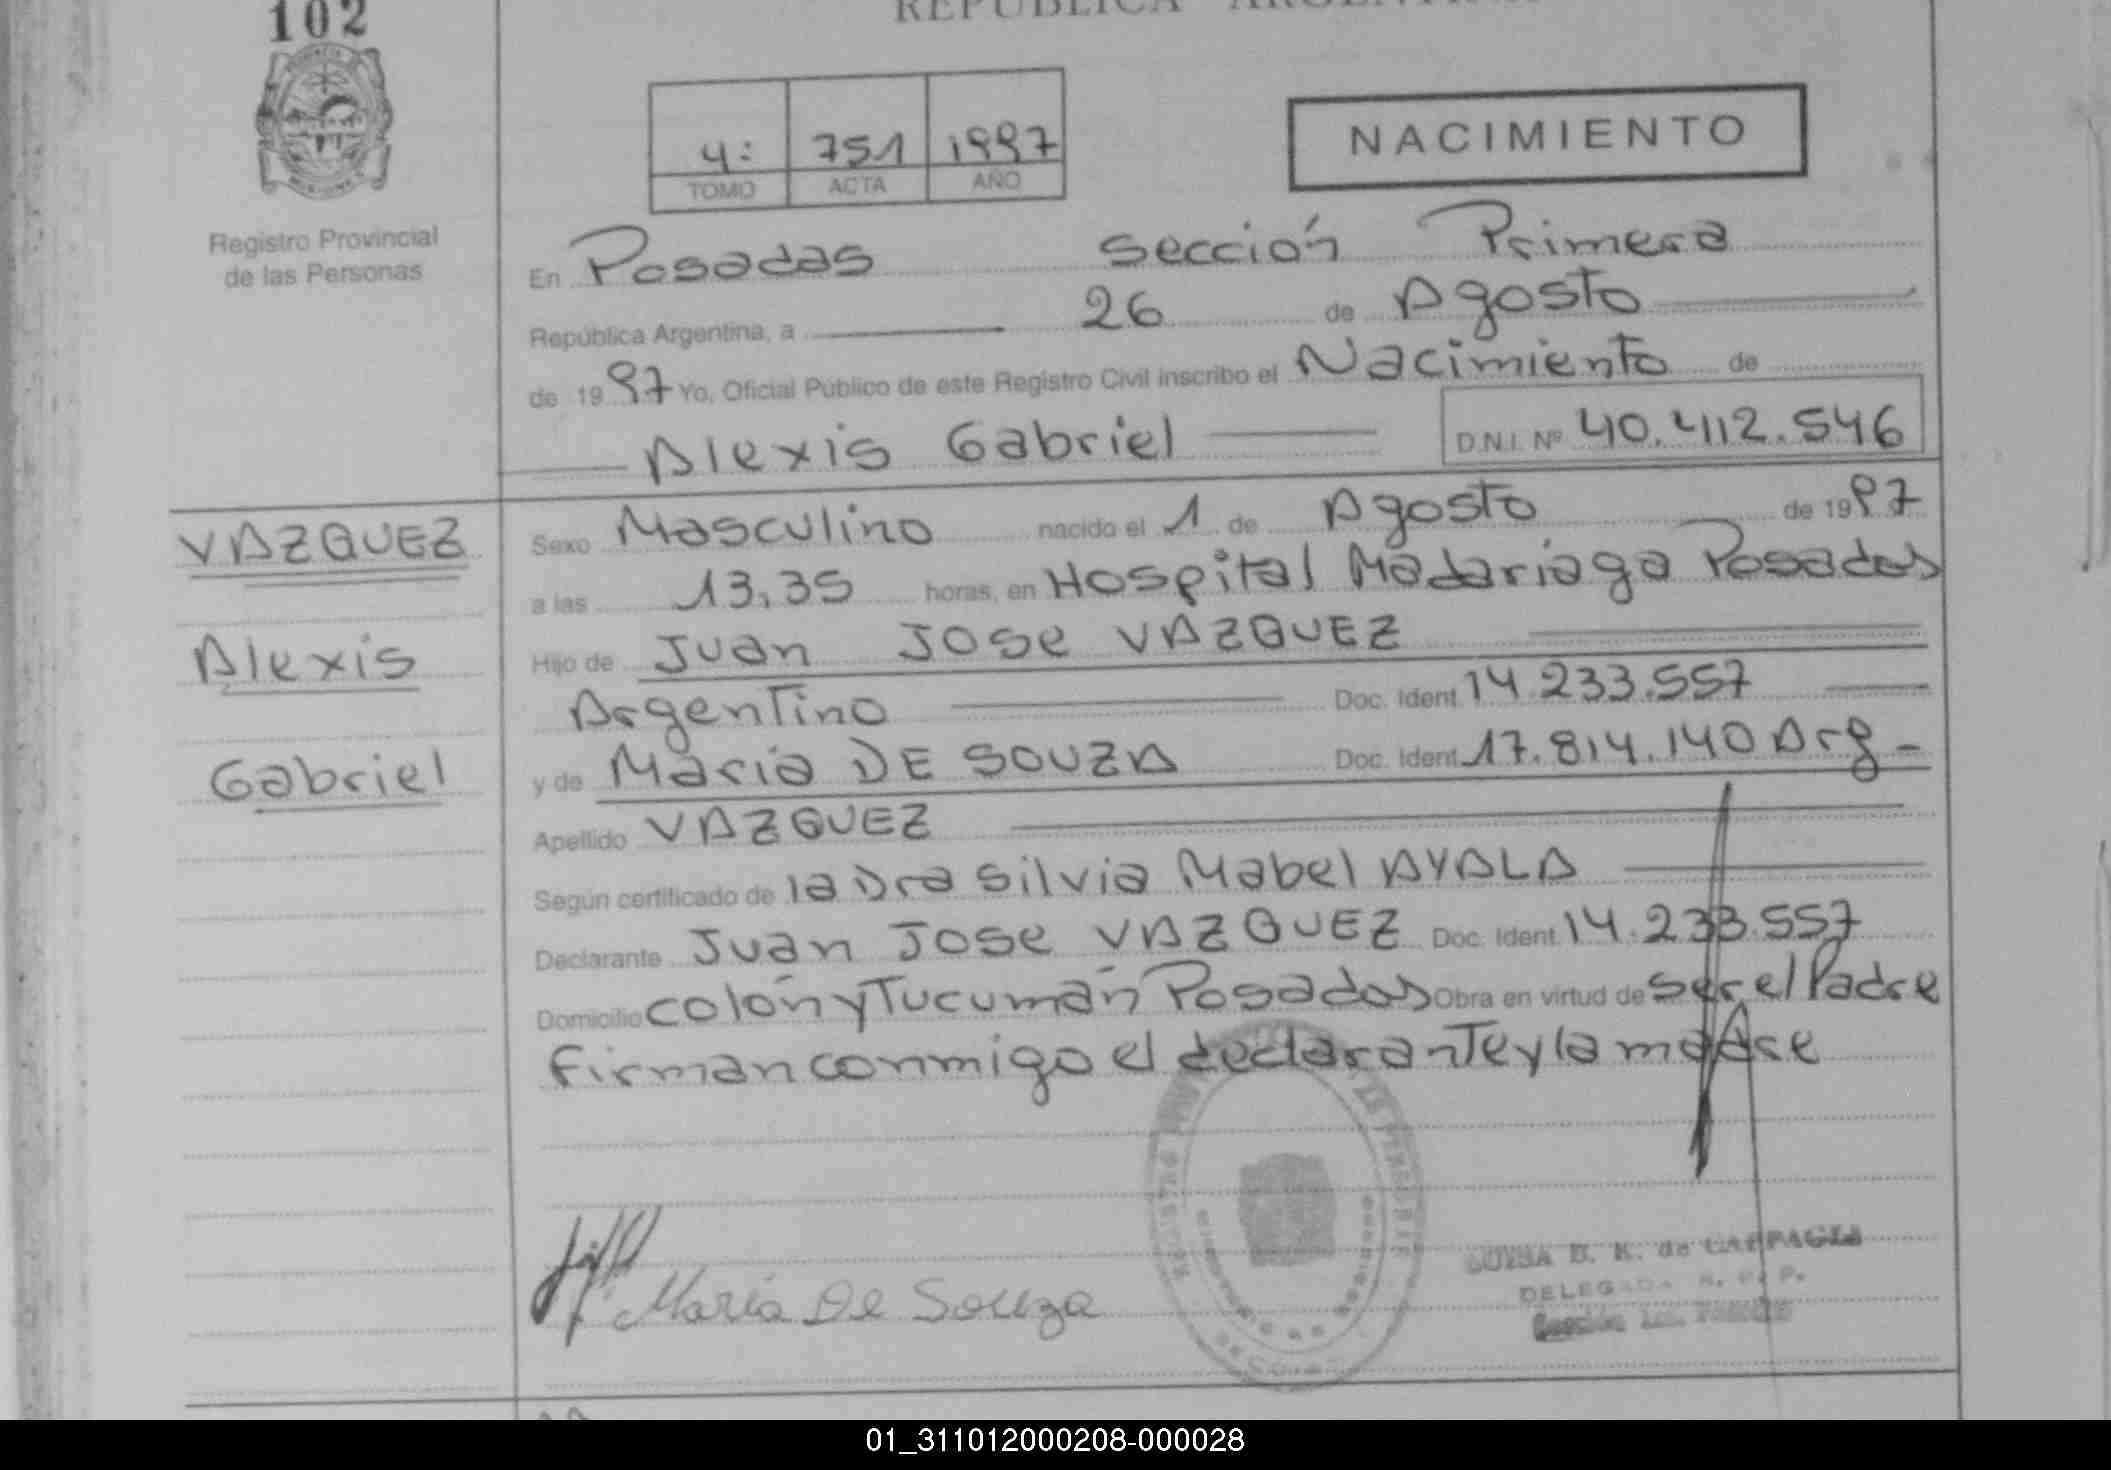 102
REPUBLICA ARGENTINA
4: 751 1997
TOMO ACTA AÑO
NACIMIENTO
Registro Provincial
de las Personas
En Posadas sección Primera
República Argentina, a 26 de Agosto
de 1997 Yo, Oficial Público de este Registro Civil inscribo el Nacimiento de
Alexis Gabriel D.N.I. Nº 40.412.546
VAZQUEZ
Alexis
Gabriel
Sexo Masculino nacido el 1 de Agosto de 1997
a las 13,35 horas, en Hospital Madariaga Posadas
Hijo de Juan Jose VAZQUEZ
Argentino Doc. Ident. 14.233.557
y de Maria DE SOUZA Doc. Ident. 17.814.140 Arg -
Apellido VAZQUEZ
Según certificado de la Dra Silvia Mabel AYALA
Declarante Juan Jose VAZQUEZ Doc. Ident. 14.233.557
Domicilio colón y Tucumán Posadas Obra en virtud de ser el Padre
firman conmigo el declarante y la madre
María De Souza
DELEGADA R. P. P.
01_311012000208-000028